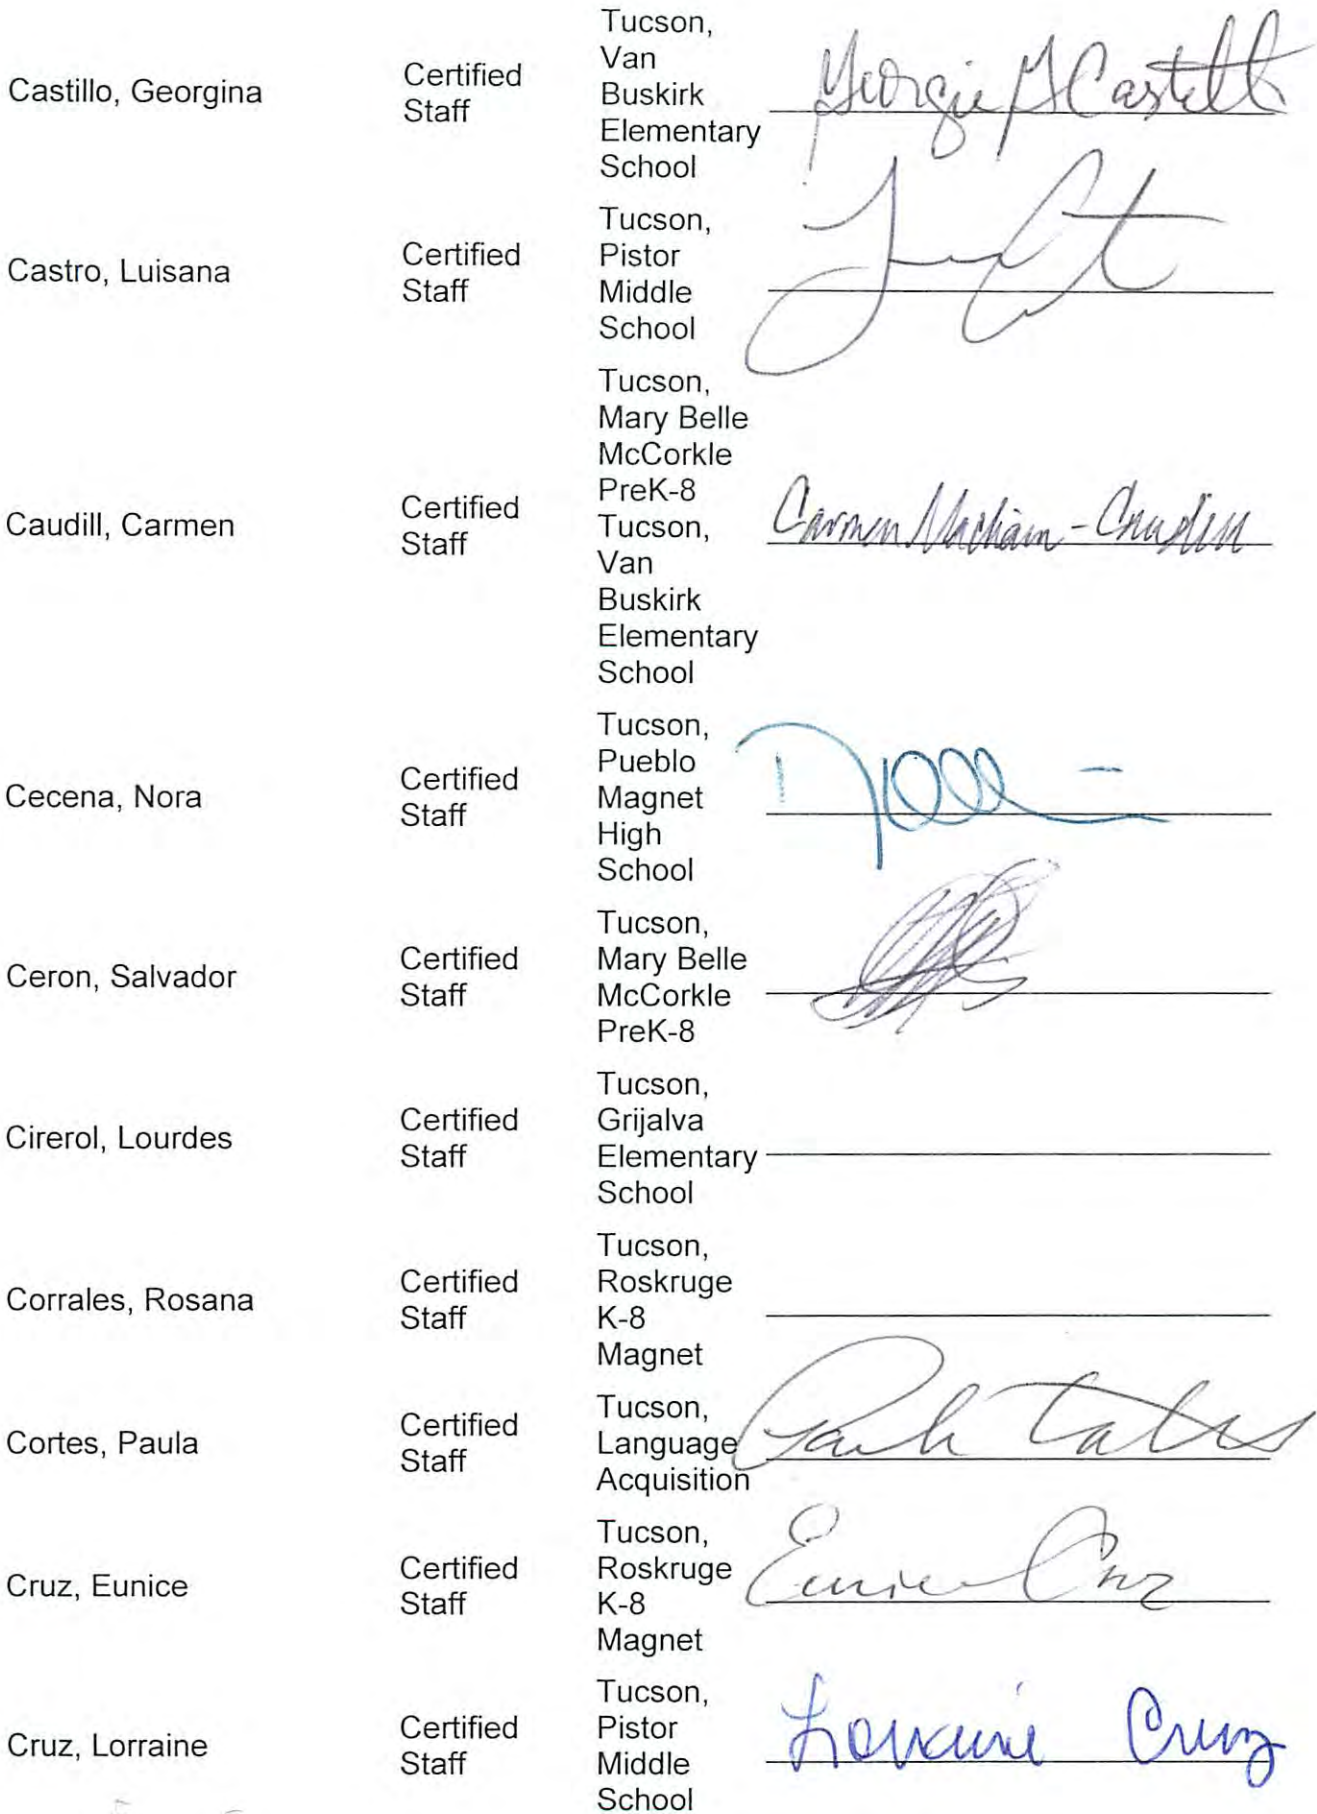 Castillo, Georgina
Certified
Staff
Tucson,
Van
Buskirk
Elementary
School
Castro, Luisana
Certified
Staff
Tucson,
Pistor
Middle
School
Caudill, Carmen
Certified
Staff
Tucson,
Mary Belle
McCorkle
PreK-8
Tucson,
Van
Buskirk
Elementary
School
Carmen
Cecena, Nora
Certified
Staff
Tucson,
Pueblo
Magnet
High
School
Ceron, Salvador
Certified
Staff
Tucson,
Mary Belle
McCorkle
PreK-8
Cirerol, Lourdes
Certified
Staff
Tucson,
Grijalva
Elementary
School
Corrales, Rosana
Certified
Staff
Tucson,
Roskruge
K-8
Magnet
Cortes, Paula
Certified
Staff
Tucson,
Language
Acquisition
Cruz, Eunice
Certified
Staff
Tucson,
Roskruge
K-8
Magnet
Eunice Cruz
Cruz, Lorraine
Certified
Staff
Tucson,
Pistor
Middle
School
Lorraine Cruz